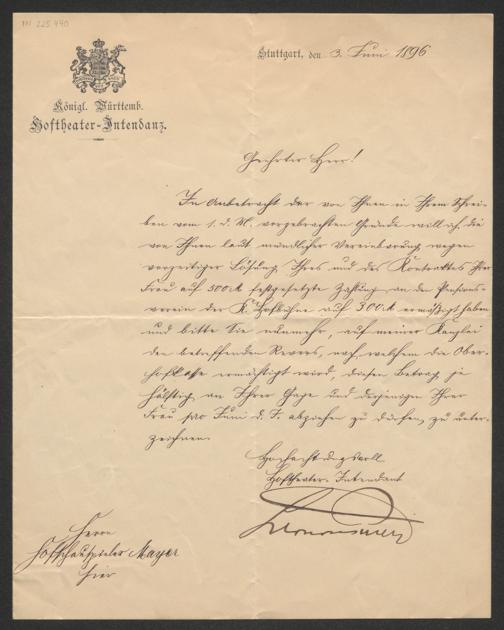 IN 225.440
Stuttgart, den 3. Juni 1896
Königl. Württemb.
Hoftheater-Intendanz.
Geehrter Herr!
In Anbetracht der von Ihnen in Ihrem Schrei-
ben vom 1. d. M. vorgebrachten Gründe will ich die
von Ihnen laut mündlicher Vereinbarung wegen
vorzeitiger Lösung Ihres und des Kontraktes Ihrer
Frau auf 500 M festgesetzte Zahlung an den Pensions-
verein der K. Hofbühne auf 300 M ermäßigt haben
und bitte Sie nunmehr, auf meiner Kanzlei
den betreffenden Revers, nach welchem die Ober-
hofkasse ermächtigt wird, diesen Betrag je
hälftig an Ihrer Gage und derjenigen Ihrer
Frau pro Juni d. J. abziehen zu dürfen, zu unter-
zeichnen.
Hochachtungsvoll
Hoftheater-Intendant
Herrn
Hofschauspieler Mayer
hier